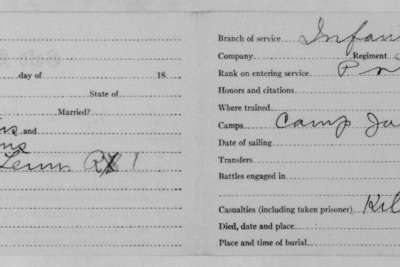 day of 18
State of
Married?
and
R 1
Branch of service Infan
Company Regiment
Rank on entering service
Honors and citations
Where trained
Camps Camp Ja
Date of sailing
Transfers
Battles engaged in
Casualties (including taken prisoner) Kil
Died, date and place
Place and time of burial